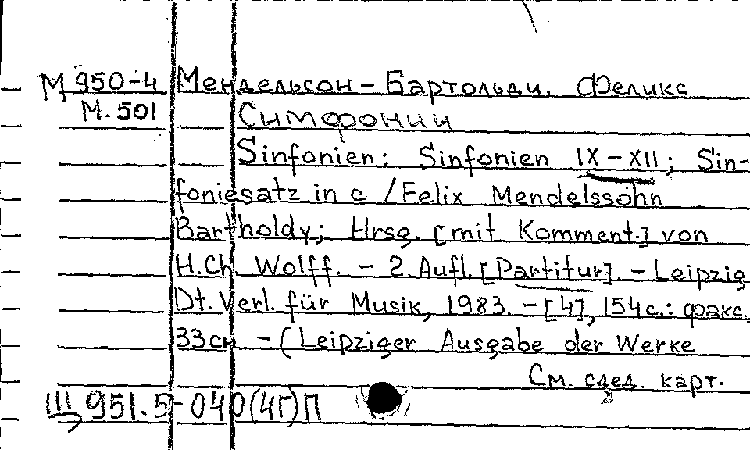 М 950-4 Мендельсон-Бартольди, Феликс
М. 501 Симфонии
Sinfonien: Sinfonien IX-XII; Sin-
foniesatz in c / Felix Mendelssohn
Bartholdy; Hrsg. [mit Komment.] von
H.Ch. Wolff. - 2. Aufl. [Partitur]. - Leipzig
Dt. Verl. für Musik, 1983. - [4], 154 с.: факс.
33см - (Leipziger Ausgabe der Werke
См. след. карт.
Ш 951.5-040(4Г)П